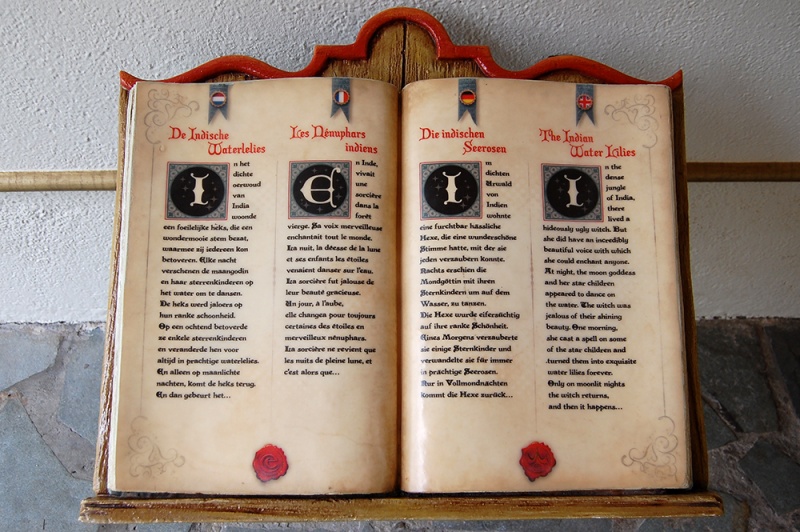 De Indische
Waterlelies
In het
dichte
oerwoud
van
India
woonde
een foeilelijke heks, die een
wondermooie stem bezat,
waarmee zij iedereen kon
betoveren. Elke nacht
verschenen de maangodin
en haar sterrenkinderen op
het water om te dansen.
De heks werd jaloers op
hun ranke schoonheid.
Op een ochtend betoverde
ze enkele sterrenkinderen
en veranderde hen voor
altijd in prachtige waterlelies.
En alleen op maanlichte
nachten, komt de heks terug.
En dan gebeurt het...
Les Nénuphars
indiens
En Inde,
vivait
une
sorcière
dans la
forêt
vierge. Sa voix merveilleuse
enchantait tout le monde.
La nuit, la déesse de la lune
et ses enfants les étoiles
venaient danser sur l'eau.
La sorcière fut jalouse de
leur beauté gracieuse.
Un jour, à l'aube,
elle changea pour toujours
certaines des étoiles en
merveilleux nénuphars.
La sorcière ne revient que
les nuits de pleine lune, et
c'est alors que...
Die indischen
Seerosen
Im
dichten
Urwald
von
Indien
wohnte
eine furchtbar hässliche
Hexe, die eine wunderschöne
Stimme hatte, mit der sie
jeden verzaubern konnte.
Nachts erschien die
Mondgöttin mit ihren
Sternkindern um auf dem
Wasser, zu tansen.
Die Hexe wurde eifersüchtig
auf ihre ranke Schönheit.
Eines Morgens verzauberte
sie einige Sternkinder und
verwandelte sie für immer
in prächtige Seerosen.
Nur in Vollmondnächten
kommt die Hexe zurück...
The Indian
Water Lilies
In the
dense
jungle
of India,
there
lived a
hideously ugly witch. But
she did have an incredibly
beautiful voice with which
she could enchant anyone.
At night, the moon goddess
and her star children
appeared to dance on
the water. The witch was
jealous of their shining
beauty. One morning,
she cast a spell on some
of the star children and
turned them into exquisite
water lilies forever.
Only on moonlit nights
the witch returns,
and then it happens...